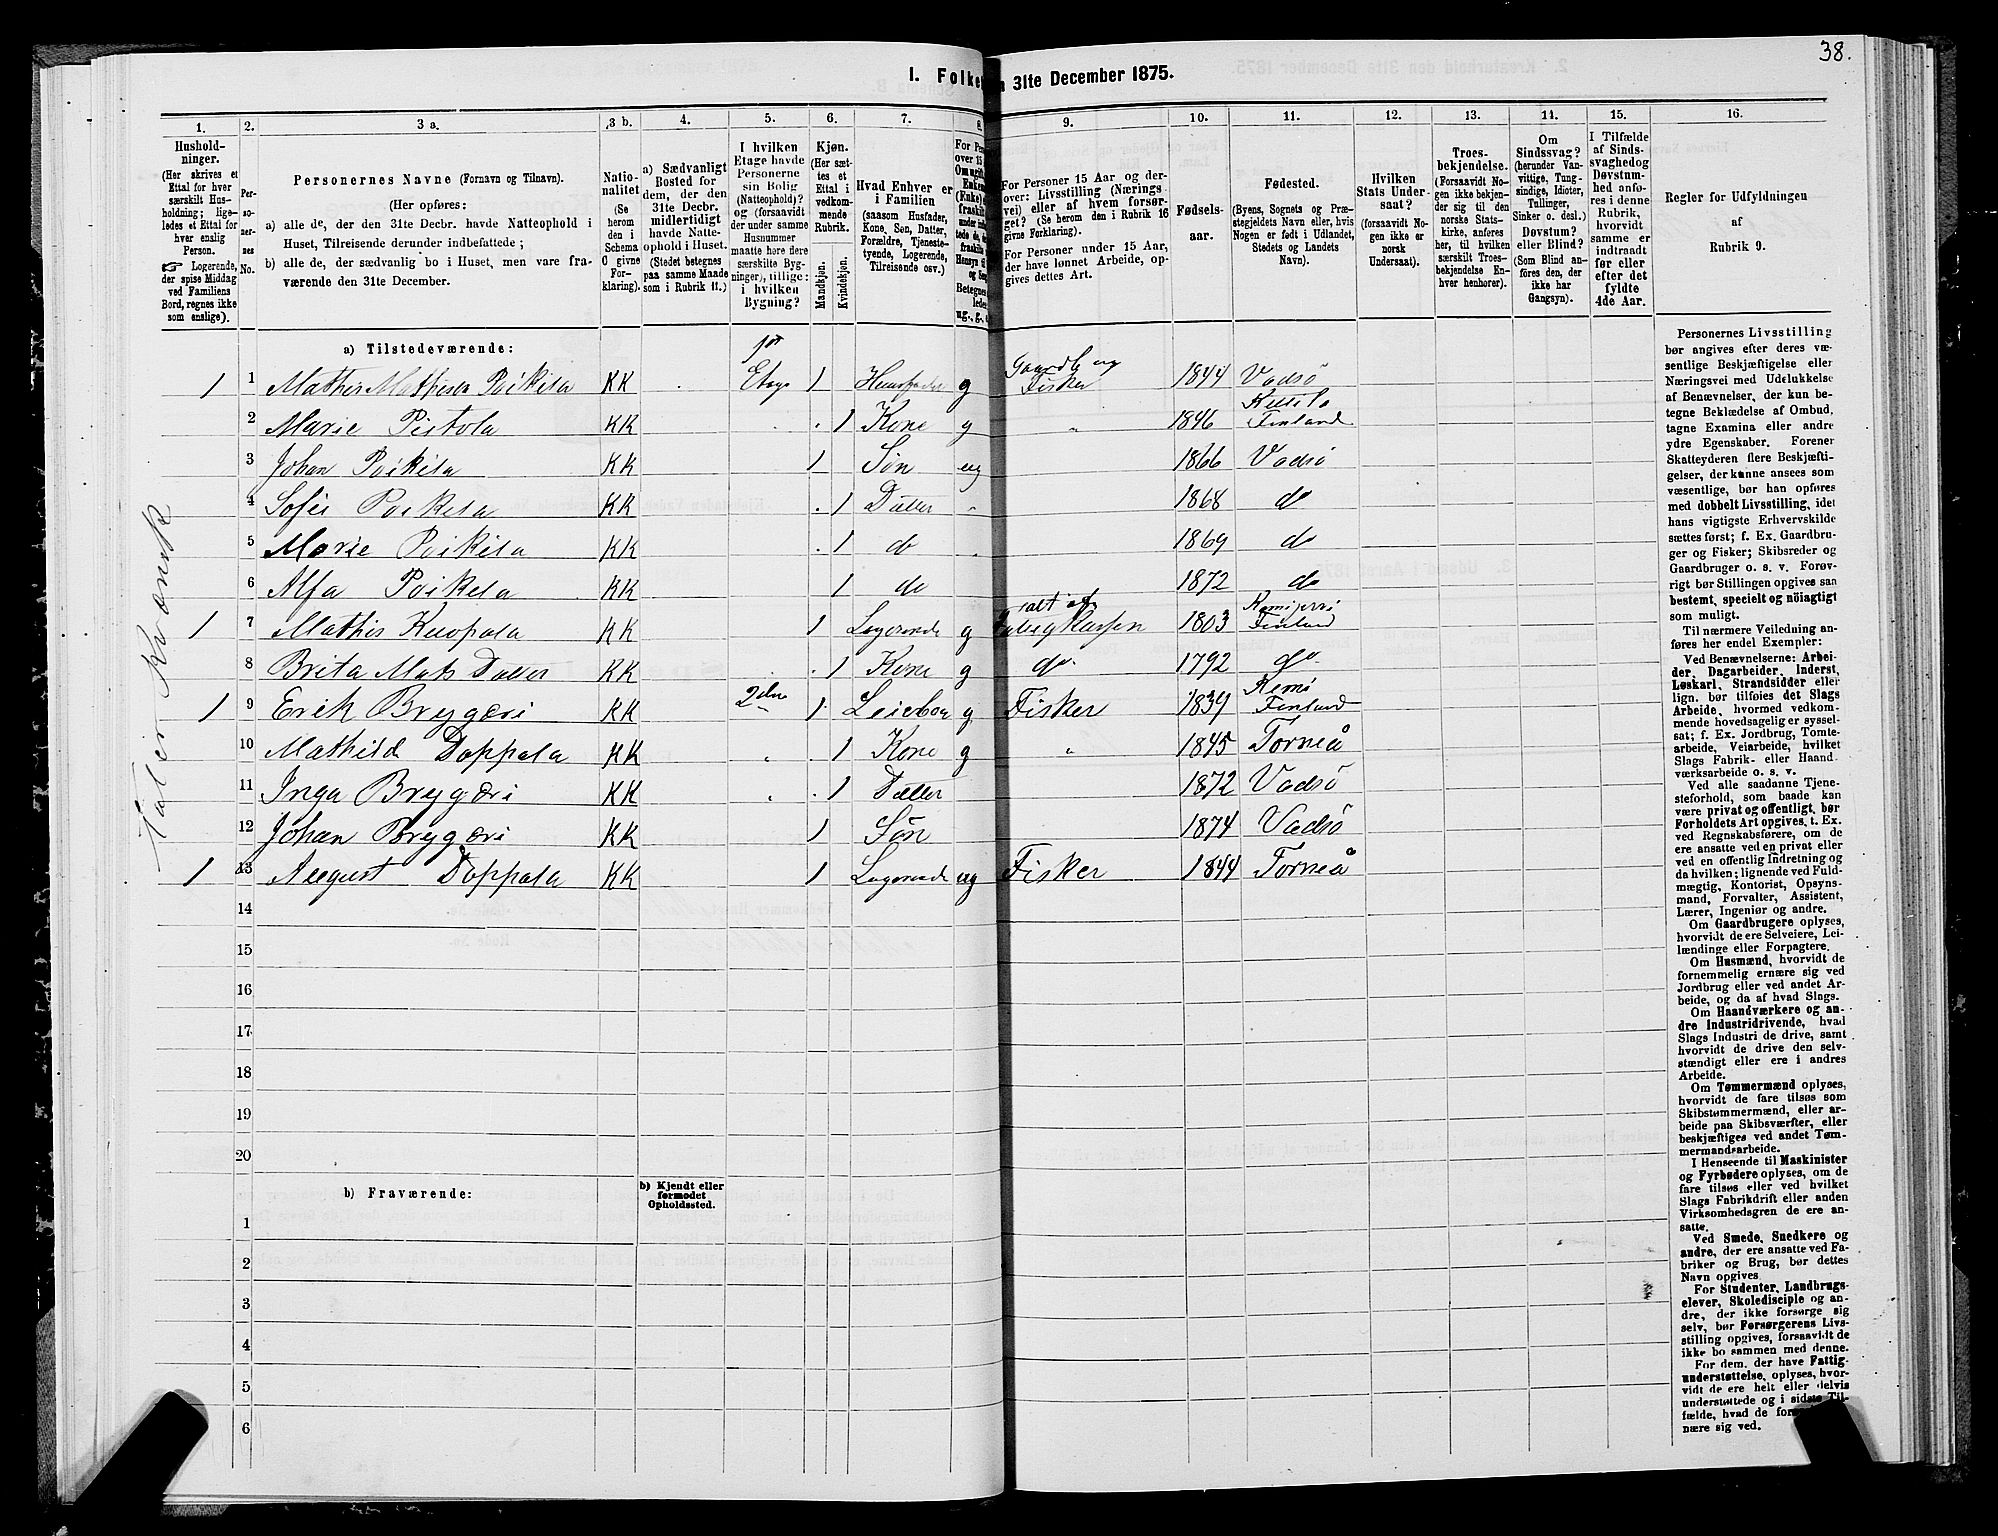 38.
1. Folke n 31te December 1875.
1.
Hushold-
ninger.
(Her skrives et
Ettal for hver
særskilt Hus-
holdning; lige-
ledes et Ettal for
hver enslig
Person.
☞ Logerende,
der spise Middag
ved Familiens
Bord, regnes ikke
som enslige).
2.
Per-
so-
ner-
nes
No.
3 a.
Personernes Navne (Fornavn og Tilnavn).
(Her opføres:
a) alle de, der den 31te Decbr. havde Natteophold i
Huset, Tilreisende derunder indbefattede;
b) alle de, der sædvanlig bo i Huset, men vare fra-
værende den 31te December.
3 b.
Natio-
nalitet
(Se
herom
den i
Schema
O givne
For-
klaring).
4.
a) Sædvanligt
Bosted for
dem, der den
31te Decbr.
midlertidigt
havde Natte-
ophold i Huset.
(Stedet betegnes
paa samme Maade
som i Rubrik 11.)
5.
I hvilken
Etage havde
Personerne
sin Bolig
(Natteophold)?
og (forsaavidt
der under samme
Husnummer
maatte høre flere
særskilte Byg-
ninger), tillige:
i hvilken
Bygning?
6.
Kjøn.
(Her sæt-
tes et
Ettal i
vedkom-
mende
Rubrik.
Mandkjøn.
Kvindekjøn.
7.
Hvad Enhver er
i Familien
(saasom Husfader,
Kone, Søn, Datter,
Forældre, Tjeneste-
tyende, Logerende,
Tilreisende osv.)
8.
9.
For Personer 15 Aar og der-
over: Livsstilling (Nærings-
vei) eller af hvem forsør-
get? (Se herom den i Rubrik 16
givne Forklaring).
For Personer under 15 Aar,
der have lønnet Arbeide, op-
gives dettes Art.
10.
Fødsels-
aar.
11.
Fødested.
(Byens, Sognets og Præ-
stegjeldets Navn eller, hvis
Nogen er født i Udlandet,
Stedets og Landets
Navn).
12.
Hvilken
Stats Under-
saat?
(forsaavidt No-
gen ikke er
norsk
Undersaat).
13.
Troes-
bekjendelse.
(Forsaavidt No-
gen ikke bekjen-
der sig til den
norske Stats-
kirke, anføres
her, til hvilken
særskilt Troes-
bekjendelse En-
hver henhører).
14.
Om
Sindssvag?
(herunder Van-
vittige, Tung-
sindige, Idioter,
Tullinger,
Sinker o. desl.)
Døvstum?
eller Blind?
(Som Blind an-
føres den, der
ikke har
Gangsyn).
15.
I Tilfælde
af Sinds-
svaghed og
Døvstum-
hed anfø-
res i denne
Rubrik,
hvorvidt
samme er
indtraadt
før eller
efter det
fyldte
4de Aar.
16.
Regler for Udfyldningen
af
Rubrik 9.
a) Tilstedeværende:
1 1 Mathis Mathesen Poikela KK 1st Etage 1 Huusfader g Gaardb og Fisker 1844 Vadsö
2 Marie Pistola KK 1 Kone g " 1846 Finland
3 Johan Poikela KK 1 Søn ug 1866 Vadsö
4 Sofie Poikela KK 1 Datter " 1868 do
5 Marie Poikela KK 1 do 1869 do
6 Alfa Poikela KK 1 do 1872 do
1 7 Mathis Kuopala KK 1 Logerende g 1803 Finland
8 Brita Mats Datter KK 1 Kone g do 1792 do
1 9 Erik Brygæri KK 2den 1 Leieboe g Fisker 1839 Kemi Finland
10 Mathild Doppala KK 1 Kone g " 1845 Torneå
11 Inga Brygæri KK 1 Datter 1872 Vadsö
12 Johan Brygæri KK 1 Søn 1874 Vadsö
1 13 August Doppala KK 1 Logerende ug Fisker 1844 Torneå
14
15
16
17
18
19
20
b) Fraværende:
b) Kjendt eller
formodet
Opholdssted.
1
2
3
4
5
6
Taler Kvænsk
Personernes Livsstilling
bør angives efter deres væ-
sentlige Beskjæftigelse eller
Næringsvei med Udelukkelse
af Benævnelser, der kun be-
tegne Beklædelse af Ombud,
tagne Examina eller andre
ydre Egenskaber. Forener
Skatteyderen flere Beskjæfti-
gelser, der kunne ansees som
væsentlige, bør han opføres
med dobbelt Livsstilling, idet
hans vigtigste Erhvervskilde
sættes først; f. Ex. Gaardbru-
ger og Fisker; Skibsreder og
Gaardbruger o. s. v. Forøv-
rigt bør Stillingen opgives saa
bestemt, specielt og nöiagtigt
som muligt.
Til nærmere Veiledning an-
føres her endel Exempler:
Ved Benævnelserne: Arbei-
der, Dagarbeider, Inderst,
Løskarl, Strandsidder eller
lign. bør tilføies det Slags
Arbeide, hvormed vedkom-
mende hovedsagelig er syssel-
sat; f. Ex. Jordbrug, Tomte-
arbeide, Veiarbeide, hvilket
Slags Fabrik- eller Haand-
værksarbeide o. s. v.
Ved alle saadanne Tjene-
steforhold, som baade kan
være privat og offentligt, bør
Forholdets Art opgives, t. Ex.
ved Regnskabsførere, om de
ere ansatte ved en privat eller
ved en offentlig Indretning og
da hvilken; lignende ved Fuld-
mægtig, Kontorist, Opsyns-
mand, Forvalter, Assistent,
Lærer, Ingeniør og andre.
Om Gaardbrugere oplyses,
hvorvidt de ere Selveiere, Lei-
lændinge eller Forpagtere.
Om Husmænd, hvorvidt de
fornemmelig ernære sig ved
Jordbrug eller ved andet Ar-
beide, og da af hvad Slags.
Om Haandværkere og an-
dre Industridrivende, hvad
Slags Industri de drive, samt
hvorvidt de drive den selv-
stændigt eller ere i andres
Arbeide.
Om Tømmermænd oplyses,
hvorvidt de fare tilsøs som
Skibstømmermænd, eller ar-
beide paa Skibsværfter, eller
beskjæftiges ved andet Tøm-
mermandsarbeide.
I Henseende til Maskinister
og Fyrbødere oplyses, om de
fare tilsøs eller ved hvilket
Slags Fabrikdrift eller anden
Virksomhedsgren de ere an-
satte.
Ved Smede, Snedkere og
andre, der ere ansatte ved Fa-
briker og Brug, bør dettes
Navn opgives.
For Studenter, Landbrugs-
elever, Skoledisciple og an-
dre, der ikke forsørge sig
selv, bør Forsørgerens Livs-
stilling opgives, forsaavidt de
ikke bo sammen med denne.
For dem, der have Fattig-
understøttelse, oplyses, hvor-
vidt de ere helt eller delvis
understøttede og i sidste Til-
fælde, hvad de
nære sig ved.